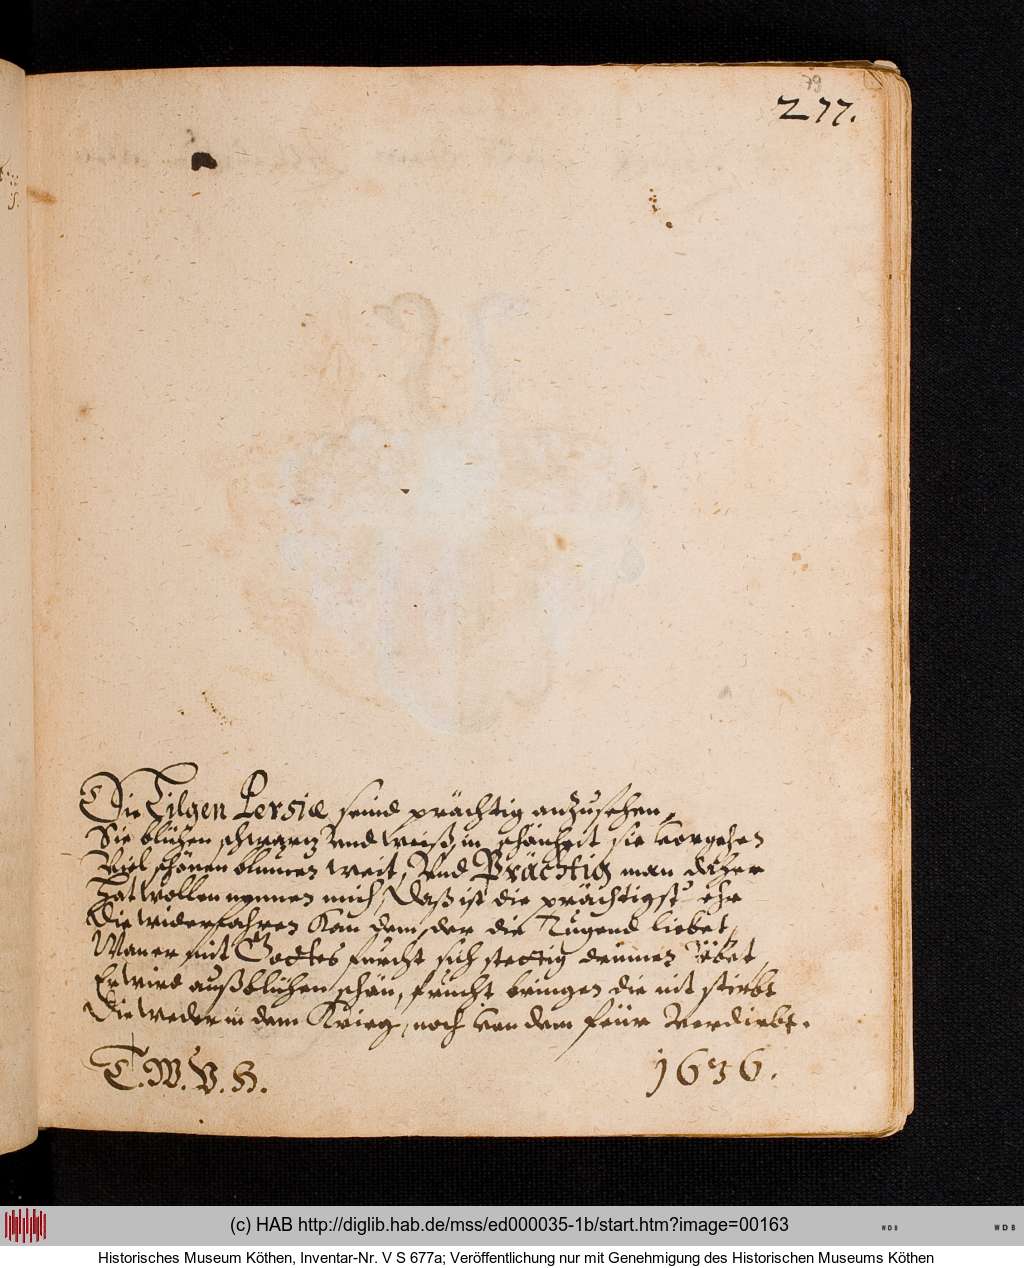 79
277.
Die Tilgen Persiæ seind prächtig anzusehen,
Sie blühen schwartz Vnd weiß, in schönheit sie vorgehen
Viel schönen blumen weit, Vnd Prächtig man daher
Hat wollen nennen mich, Daß ist die prächtigst' ehr
Die widerfahren kan dem, der die Tugend liebet,
Wan er mit Gottes furcht sich stettig drinnen übet,
Er wird außblühen schön, frucht bringen die nit stirbt
Die weder in dem Krieg, noch von dem feür verdirbt.
T. W. V. H.
1636.
(c) HAB http://diglib.hab.de/mss/ed000035-1b/start.htm?image=00163
WDB
WDB
Historisches Museum Köthen, Inventar-Nr. V S 677a; Veröffentlichung nur mit Genehmigung des Historischen Museums Köthen